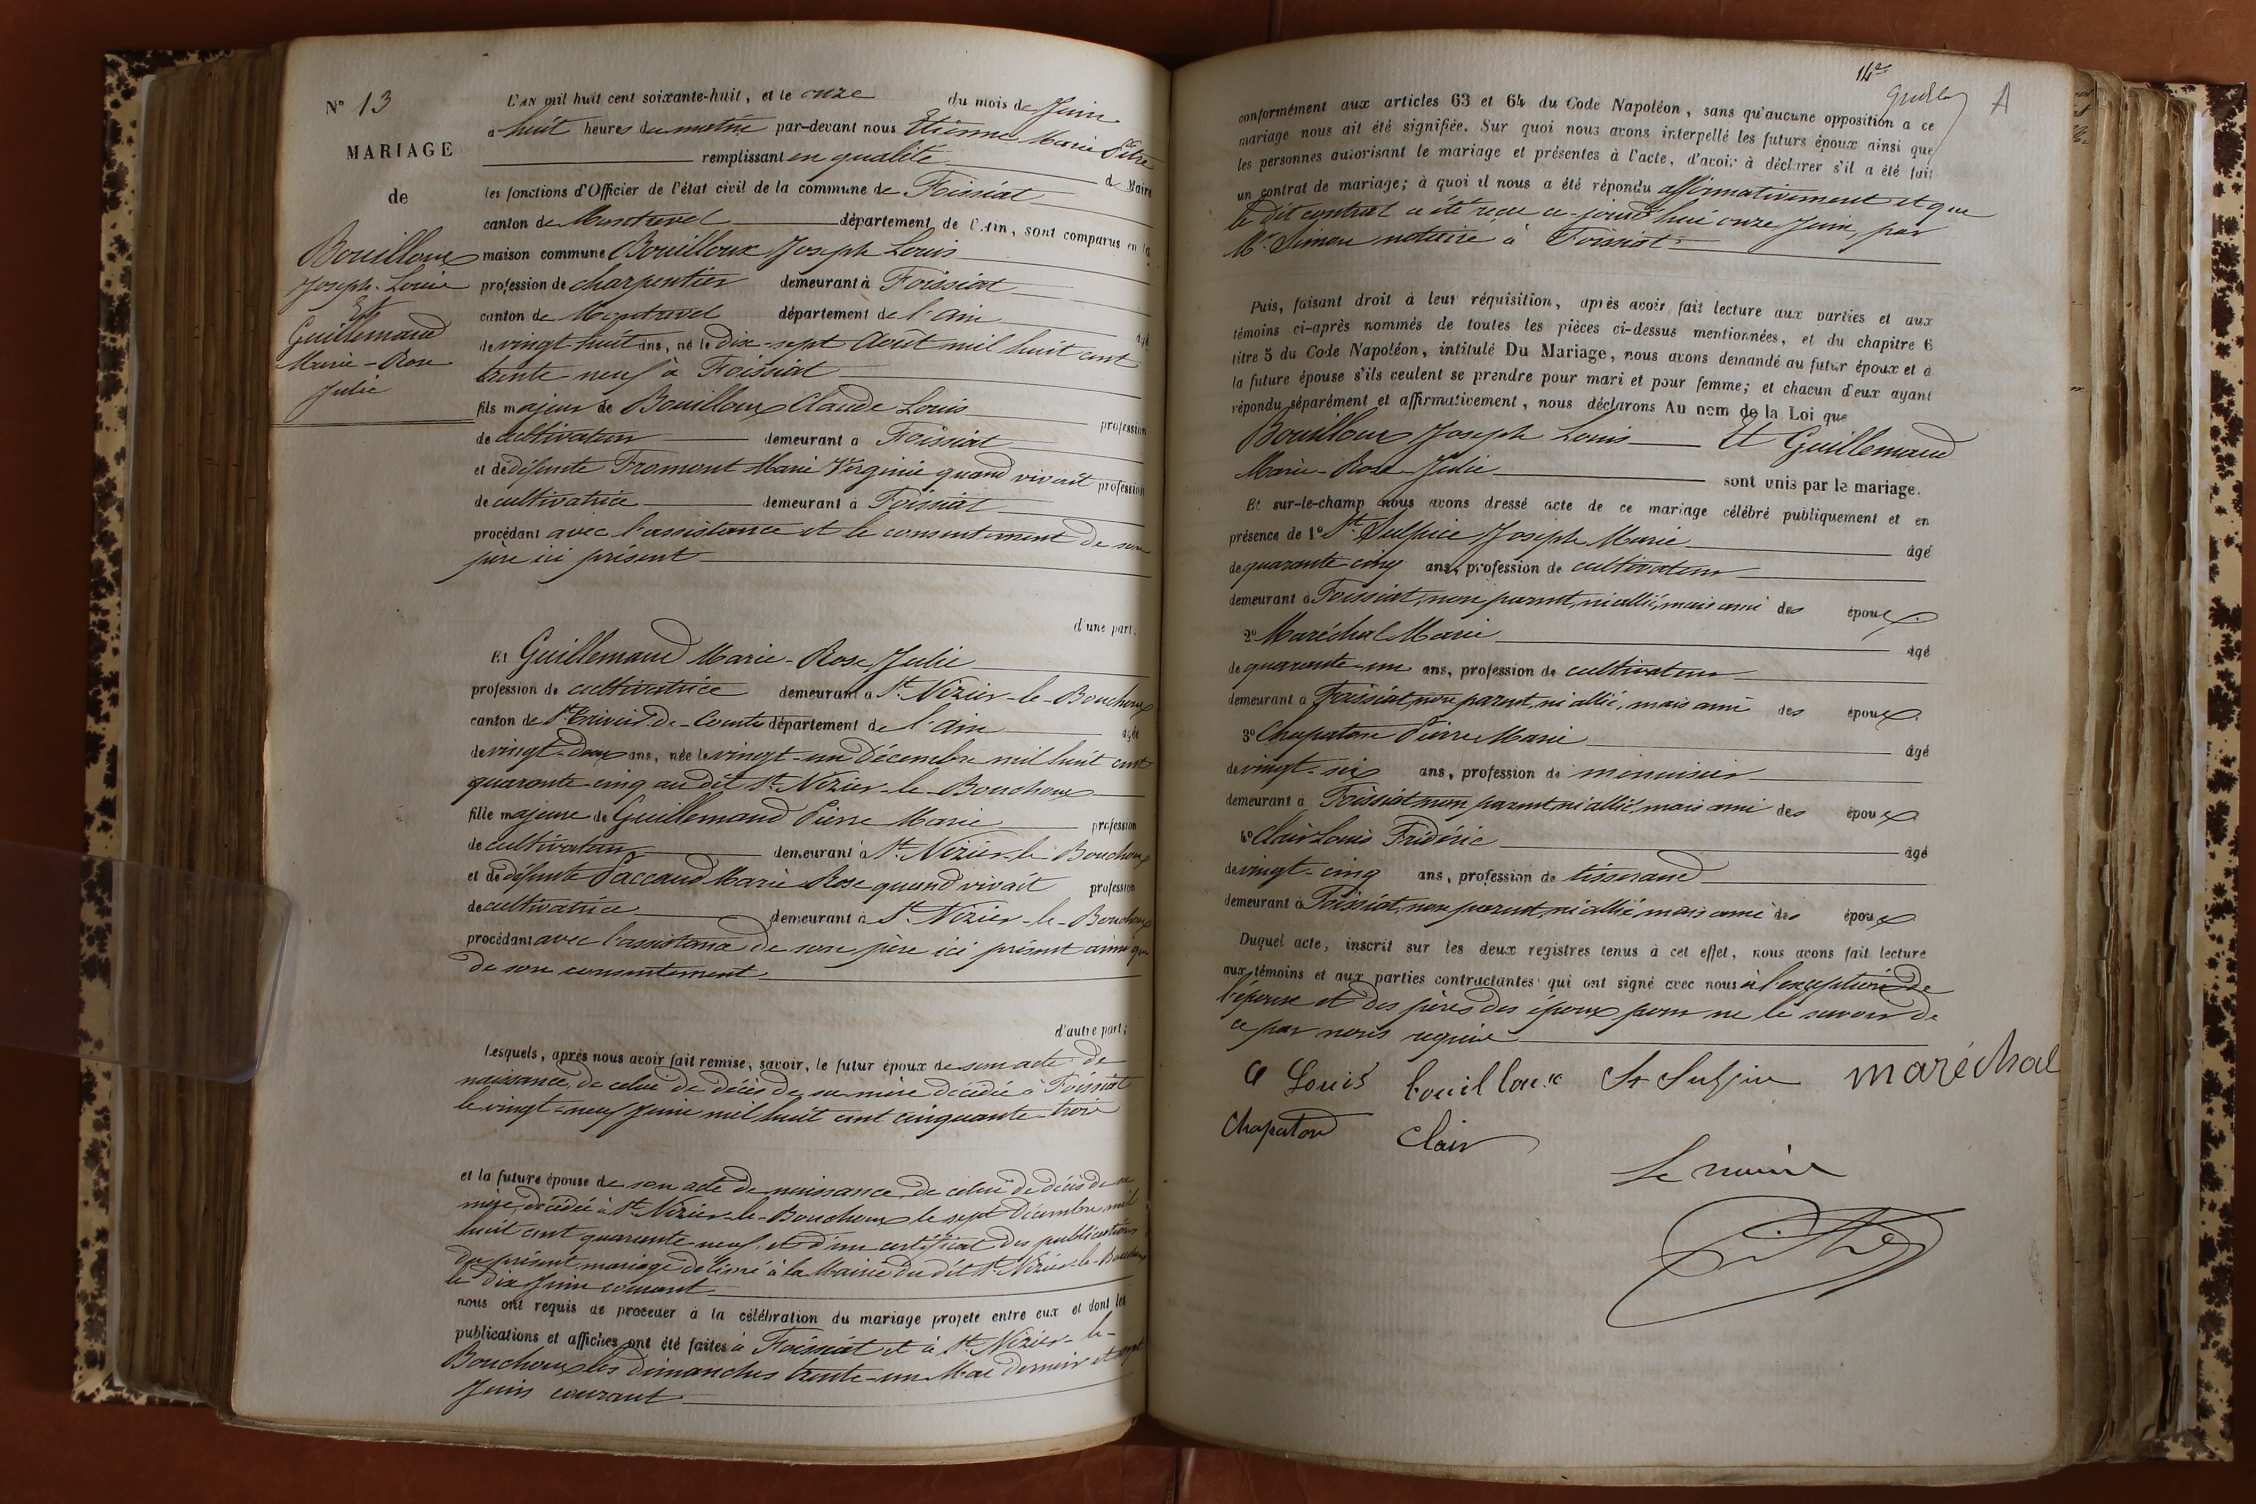 N° 13
MARIAGE
de
Bouilloux
Joseph-Louis
Et
Guillemaud
Marie-Rose
Julie
L'AN mil huit cent soixante-huit, et le onze du mois de Juin
a huit heures du matin par-devant nous Etienne Marie Pitre
remplissant en qualité de Maire
les fonctions d'Officier de l'état civil de la commune de Foissiat
canton de Montrevel département de l'Ain, sont comparus en la
maison commune Bouilloux Joseph Louis
profession de charpentier demeurant à Foissiat
canton de Montrevel département de l'ain agé
de vingt-huit ans, né le Dix-sept Août mil huit cent
trente-neuf à Foissiat
fils majeur de Bouilloux Claude Louis profession
de cultivateur demeurant a Foissiat
et de défunte Fromont Marie Virginie quand vivait profession
de cultivatrice demeurant a Foissiat
procédant avec l'assistance et le consentement de son
père ici présent
d'une part.
Et Guillemaud Marie-Rose Julie
profession de cultivatrice demeurant a St Nizier-le-Bouchoux
canton de St Trivier-de-Courtes département de l'ain agée
de vingt-deux ans, née le vingt-un Décembre mil huit cent
quarante-cinq au dit St Nizier-le-Bouchoux
fille majeure de Guillemaud Pierre Marie profession
de cultivateur demeurant à St Nizier-le Bouchoux
et de défunte Paccaud Marie Rose quand vivait profession
de cultivatrice demeurant à St Nizier-le-Bouchoux
procédant avec l'assistance de son père ici présent ainsi que
de son consentement
d'autre part;
Lesquels, après nous avoir fait remise, savoir, le futur époux de son acte de
naissance, de celui de décès de sa mère décédée à Foissiat
le vingt-neuf Juin mil huit cent cinquante-trois
et la future épouse de son acte de naissance, de celui de décès de sa
mère, décédée à St Nizier-le-Bouchoux le sept Décembre mil
huit cent quarante-neuf, et d'un certificat des publications
du présent mariage délivré à la Mairie du dit St Nizier-le-Bouchoux
le dix Juin courant
nous ont requis de procéder à la célébration du mariage projeté entre eux et dont les
publications et affiches ont été faites à Foissiat et à St Nizier-le-
Bouchoux les dimanches trente-un Mai dernier et sept
Juin courant
14e
A
conformément aux articles 63 et 64 du Code Napoléon, sans qu'aucune opposition a ce
mariage nous ait été signifiée. Sur quoi nous avons interpellé les futurs époux ainsi que
les personnes autorisant le mariage et présentes à l'acte, d'avoir à déclarer s'il a été fait
un contrat de mariage; à quoi il nous a été répondu affirmativement et que
le dit contrat a été reçu ce-jourd'hui onze Juin, par
Me Simon notaire à Foissiat
Puis, faisant droit à leur réquisition, après avoir fait lecture aux parties et aux
témoins ci-après nommés de toutes les pièces ci-dessus mentionnées, et du chapitre 6
titre 5 du Code Napoléon, intitulé Du Mariage, nous avons demandé au futur époux et à
la future épouse s'ils veulent se prendre pour mari et pour femme; et chacun d'eux ayant
répondu séparément et affirmativement, nous déclarons Au nom de la Loi que
Bouilloux Joseph Louis Et Guillemaud
Marie-Rose-Julie sont unis par le mariage.
Et sur-le-champ nous avons dressé acte de ce mariage célébré publiquement et en
présence de 1° St Sulpice Joseph Marie âgé
de quarante-cinq ans, profession de cultivateur
demeurant à Foissiat, non parent, ni allié, mais ami des époux.
2° Maréchal Marie agé
de quarante-un ans, profession de cultivateur
demeurant a Foissiat, non parent, ni allié, mais ami des époux.
3° Chapaton Pierre Marie âgé
de vingt-six ans, profession de menuisier
demeurant a Foissiat non parent ni allié, mais ami des époux
4° Clair Louis Frédéric âgé
de vingt-cinq ans, profession de tisserand
demeurant à Foissiat, non parent, ni allié mais ami des époux
Duquel acte, inscrit sur les deux registres tenus à cet effet, nous avons fait lecture
aux témoins et aux parties contractantes qui ont signé avec nous à l'exception de
l'épouse et des pères des époux pour ne le savoir de
ce par nous requis
Louis bouilloux St Sulpice maréchal
Chapaton Clair
Le maire
Pitre